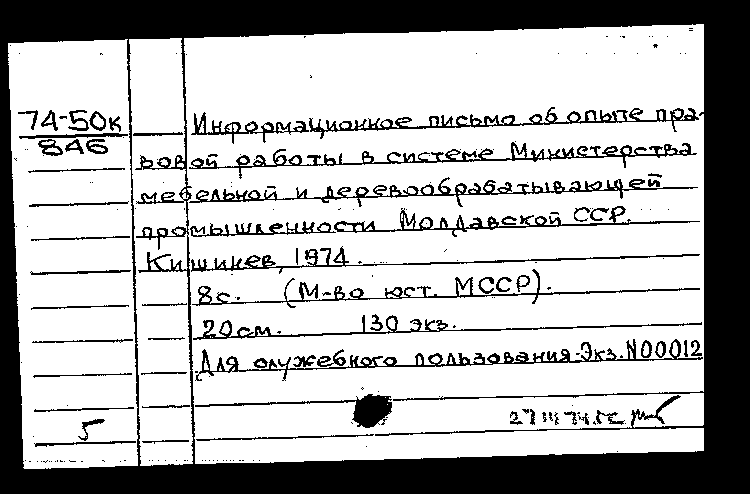 74-50к
846
Информационное письмо об опыте пра-
вовой работы в системе Министерства
мебельной и деревообрабатывающей
промышленности Молдавской ССР.
Кишинев, 1974.
8с. (М-во юст. МССР).
20см. 130 экз.
Для служебного пользования. Экз. N00012
5
27 III 74